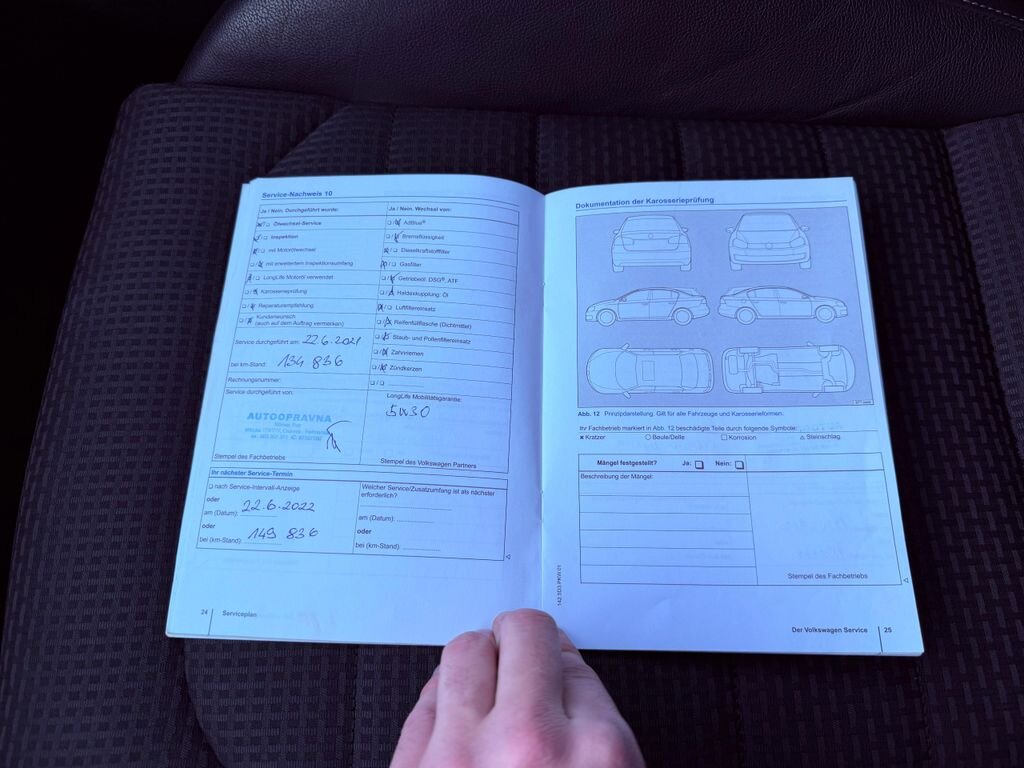 Service-Nachweis 10
Ja / Nein, Durchgeführt wurde:
Ölwechsel-Service
Inspektion
mit Motorölwechsel
mit erweitertem Inspektionsumfang
LongLife Motoröl verwendet
Karosserieprüfung
Reparaturempfehlung
Kundenwunsch
(auch auf dem Auftrag vermerken)
Service durchgeführt am: 22.6.2021
bei km-Stand: 134 836
Rechnungsnummer:
Service durchgeführt von:
AUTOOPRAVNA
Stempel des Fachbetriebs
Ja / Nein, Wechsel von:
AdBlue®
Bremsflüssigkeit
Dieselkraftstofffilter
Gasfilter
Getriebeöl: DSG®, ATF
Haldexkupplung: Öl
Luftfiltereinsatz
Reifenfüllflasche (Dichtmittel)
Staub- und Pollenfiltereinsatz
Zahnriemen
Zündkerzen
LongLife Mobilitätsgarantie:
5W30
Stempel des Volkswagen Partners
Ihr nächster Service-Termin
nach Service-Intervall-Anzeige
oder
am (Datum): 22.6.2022
oder
bei (km-Stand): 149 836
Welcher Service/Zusatzumfang ist als nächster
erforderlich?
am (Datum):
oder
bei (km-Stand):
24 Serviceplan
Dokumentation der Karosserieprüfung
Abb. 12 Prinzipdarstellung. Gilt für alle Fahrzeuge und Karosserieformen.
Ihr Fachbetrieb markiert in Abb. 12 beschädigte Teile durch folgende Symbole:
x Kratzer ○ Beule/Delle □ Korrosion △ Steinschlag
Mängel festgestellt? Ja: Nein:
Beschreibung der Mängel:
Stempel des Fachbetriebs
Der Volkswagen Service 25